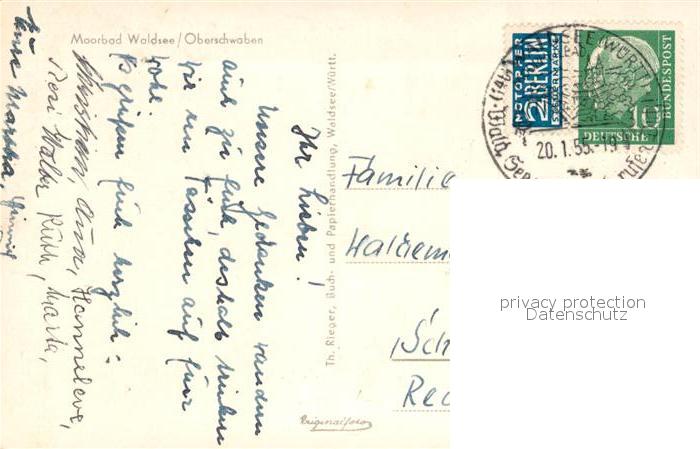 Moorbad Waldsee/Oberschwaben
Ihr Lieben!
Unsere Gedanken wandern
auch zu Euch, deshalb trinken
wir ein Tässchen auf Euer
Wohl.
Es grüßen Euch herzlich:
Christian, Anne, Hannelore,
Resi Walter Ruth, Marta,
Martha,
Th. Rieger, Buch- und Papierhandlung, Waldsee/Württ.
Originalfoto
NOTOPFER
2 BERLIN
STEUERMARKE
10
DEUTSCHE
BUNDESPOST
WALDSEE (WÜRTT)
20.1.55.-19
Familie
Waldem
Sch
Re
privacy protection
Datenschutz